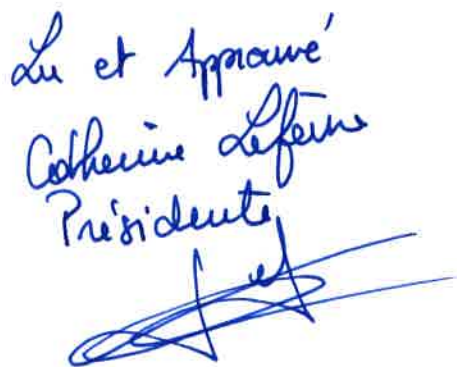 Lu et Approuvé
Catherine Lefèvre
Présidente